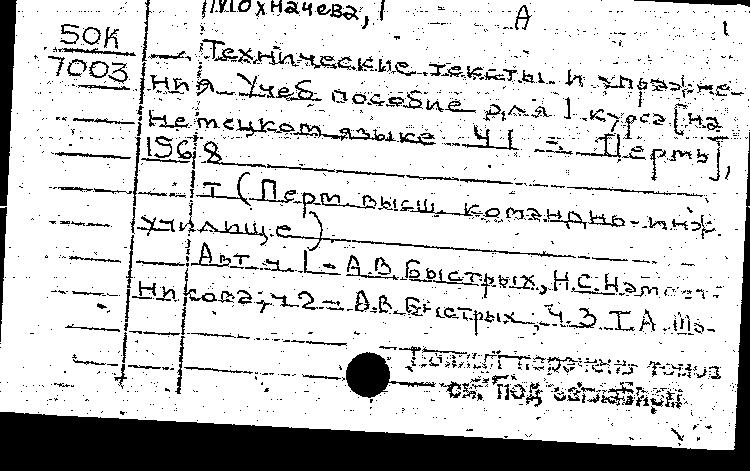 Мохначева, Г А 1
50К
7003
Технические тексты и упражне-
ния Учеб пособие для 1 курса [на
немецком языке Ч 1 - Пермь],
1968
т (Перм. высш. командно-инж.
училище).
Авт ч. 1 - А.В. Быстрых, Н.С.
никова; ч. 2 - А.В. Быстрых; Ч. 3 Т А Мо-
Полный перечень томов
см. под заглавием